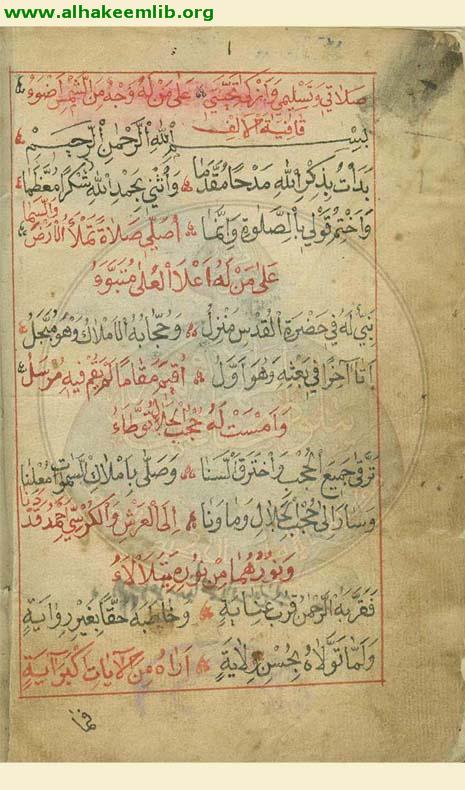 www.alhakeemlib.org
١
صلاتي وتسليمي وأزكى تحيتي على من له وجه من الشمس أضوء
قافية الالف
بسم الله الرحمن الرحيم
بدأت بذكر الله مدحا مقدما وأثني بحمد الله شكرا معظما
واختم قولي بالصلوة وإنما أصلي صلاة تملأ الأرض والسما
على من له اعلا العلى متبوء
نبي له في حضرة القدس منزل وحجابه الأملاك وهو مبجل
اتا آخرا في بعثه وهو أول أقيم مقاما لم يقم فيه مرسل
وامست له حجب الجلال توطاء
ترقى جميع الحجب واخترق السنا وصلى باملاك السموات معلنا
وسار إلى حجب الجلال وما ونا إلى العرش والكرسي احمد قد دنا
ونورهما من نوره يتلالاء
فقربه الرحمن قرب عناية وخاطبه حقا بغير رواية
ولما تولاه بحسن ولاية اراه من الآيات اكبر آية
فما